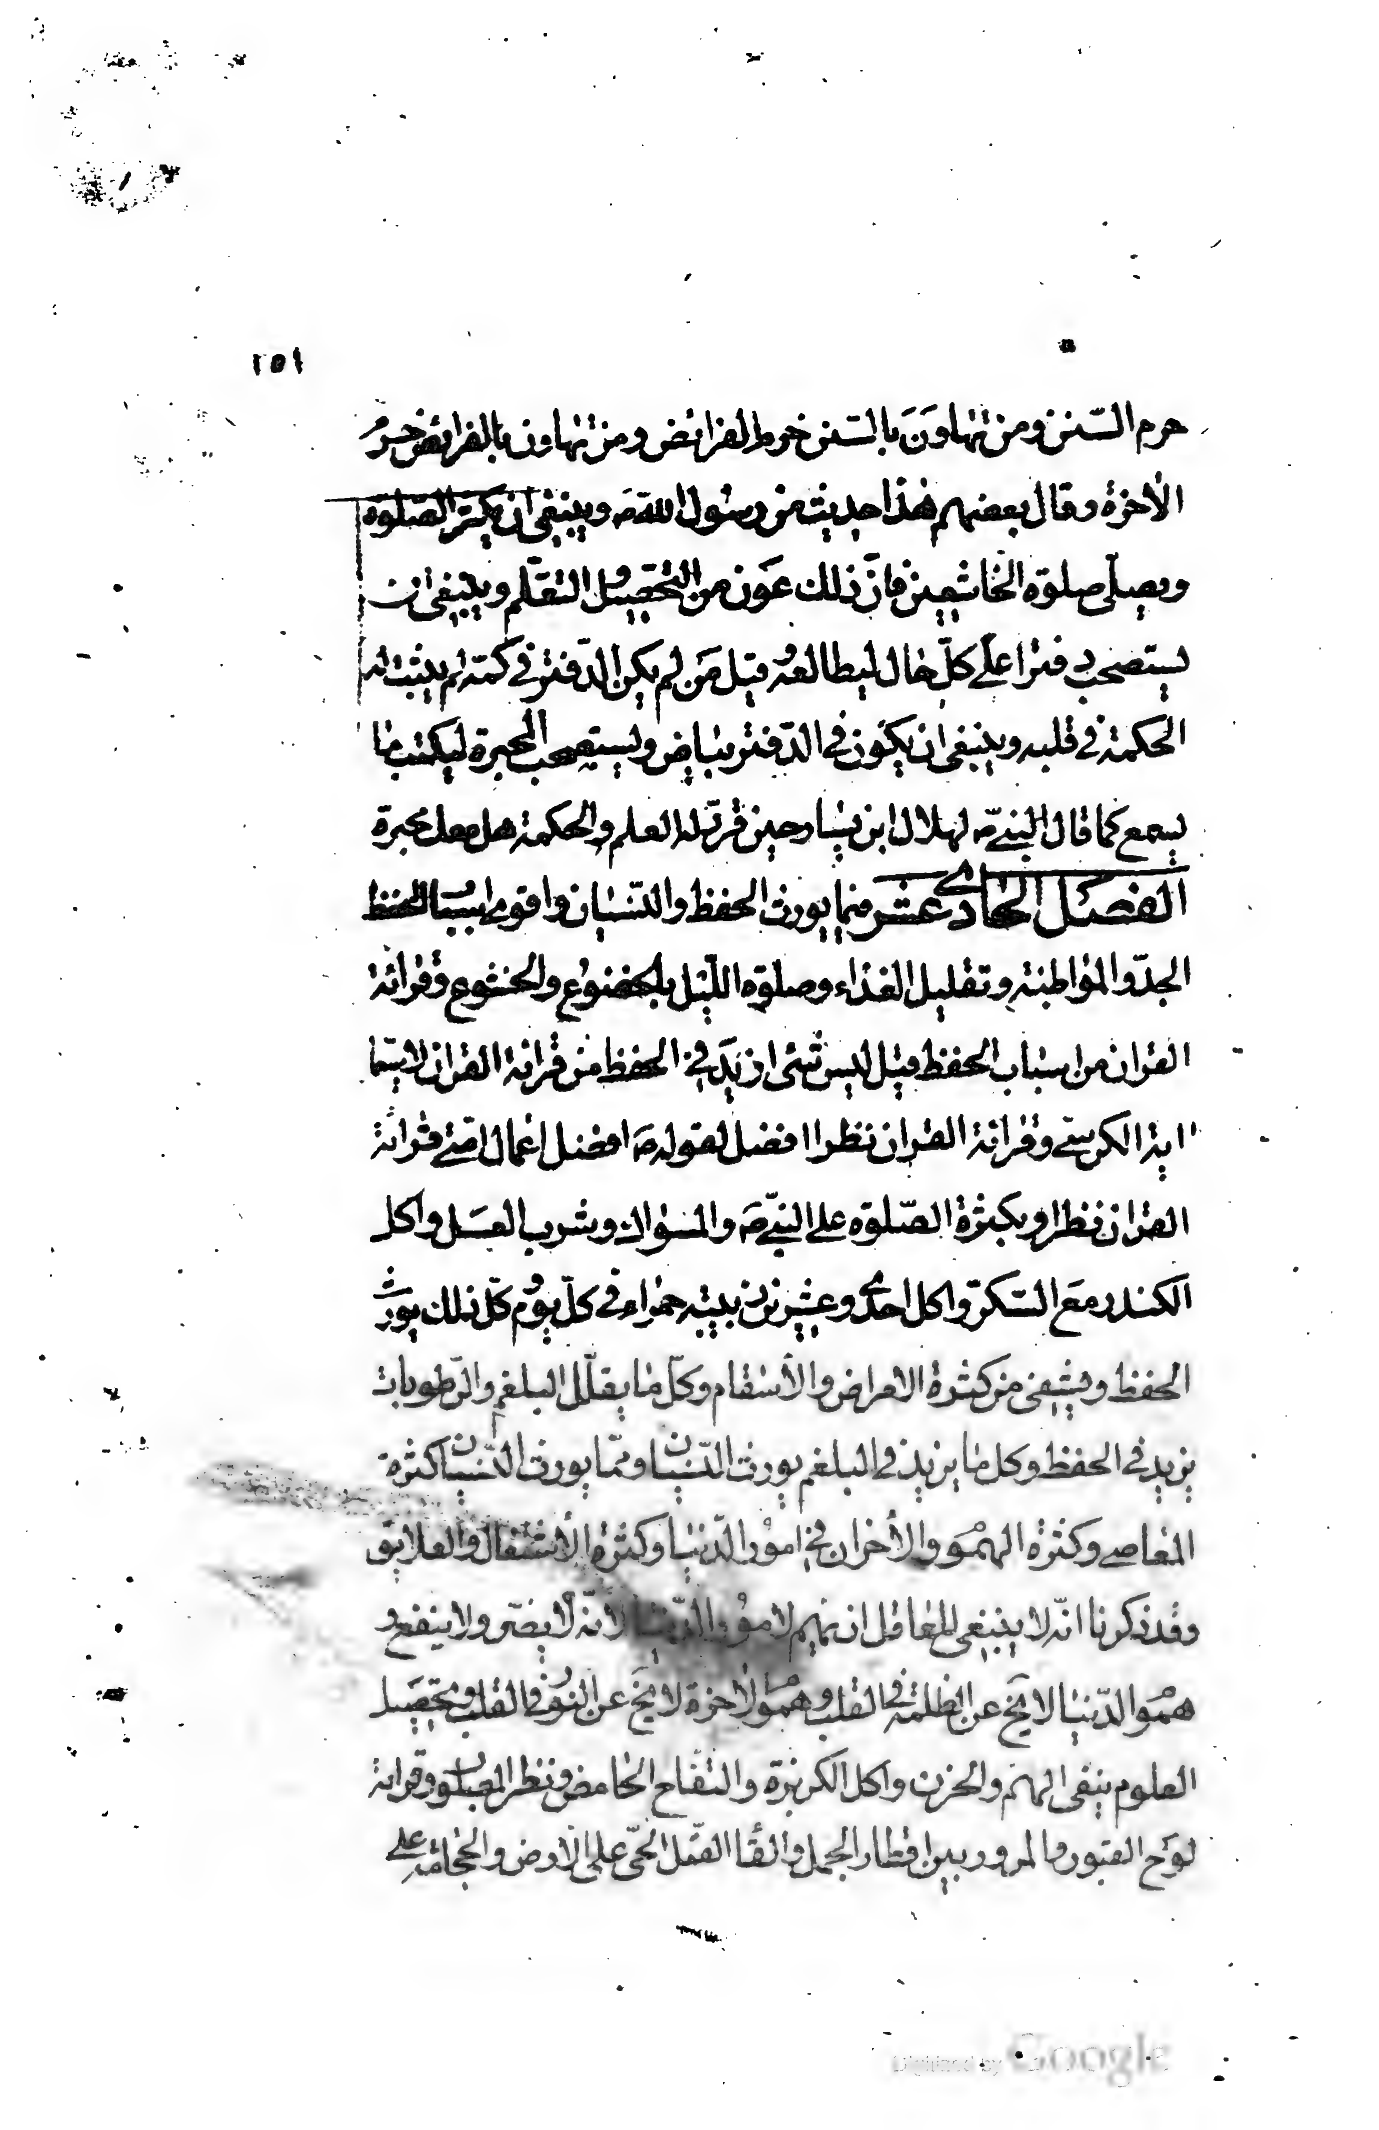 ١٥١
حرم السّنن ومن تهاوَنَ بالسّنن حرم الفرائض ومن تهاون بالفرائض حرم
الاخرة وقال بعضهم هذا حديث من رسول الله ص وينبغى ان يكثر الصّلوة
ويصلّى صلوة الخاشعين فانّ ذلك عَون من التحصيل والتعّلم وينبغى ان
يستصحب دفترا على كلّ حال ليطالعه وقيل مَن لم يكن الدّفتر في كمّه لم يثبت له
الحكمة في قلبه وينبغى ان يكون في الدّفتر بياض ويستصحب المحبرة ليكتب ما
يسمع كما قال النبىّ ص لهلال ابن يسار حين قرّر له العلم والحكمة هل معك محبرة
الفصل الحادى عشر فيما يورث الحفظ والنّسيان واقوى اسباب الحفظ
الجدّ والمواظبة وتقليل الغذاء وصلوة اللّيل بالخضوع والخشوع وقرائة
القران من اسباب الحفظ قيل ليس شئ ازيَد في الحفظ من قرائة القران لاسيّما
اية الكرسىّ وقرائة القران نظرا افضل لقوله ص افضل اعمال امّتى قرائة
القران نظرا وبكثرة الصّلوة على النبىّ ص والسّواك وشرب العسَل واكل
الكندر مَع السّكرّ واكل احدى وعشرين زبيبة حمراء في كلّ يوم كلّ ذلك يورث
الحفظ ويشفى من كثرة الامراض والأسقام وكلّ ما يقلّل البلغم والرّطوبات
يزيد في الحفظ وكل ما يزيد في البلغم يورث النّسيان وممّا يورث النّسيان كثرة
المعاصى وكثرة الهموم والأحزان في امور الدّنيا وكثرة الأشتغال والعلايق
وقد ذكرنا انّه لا ينبغى للعاقل ان يهم لامور الدّنيا لأنّه لا يضّر ولا ينفع و
هموم الدّنيا لا يخ عن الظلمة في القلب وهموم الاخرة لا يخ عن النّور في القلب وتحصيل
العلوم ينفى الهمّ والحزن واكل الكزبرة والتفّاح الحامض ونظر المصلوب وقراية
لوَح القبور والمرور بين اقطار الجمل والقاء القمّل الحىّ على الأرض والحجامة على
Digitized by Google